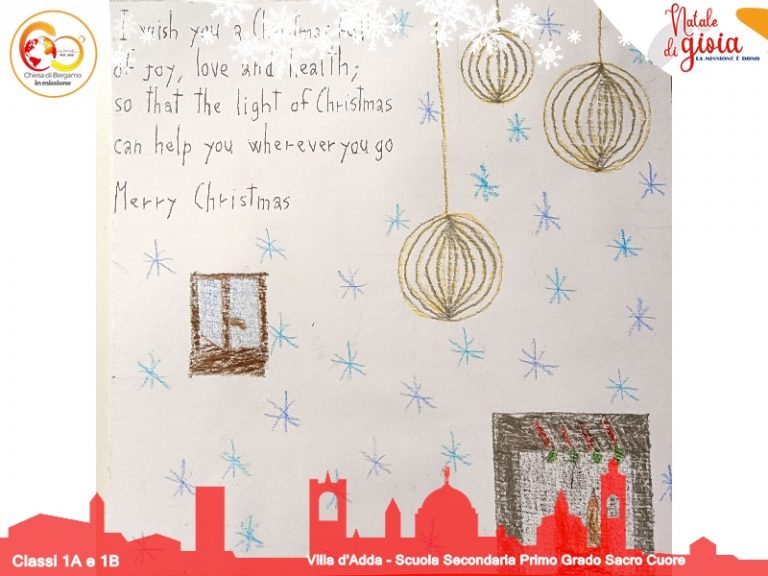 I wish you a Christmas full
of joy, love and health;
so that the light of Christmas
can help you wherever you go
Merry Christmas
Chiesa di Bergamo
in missione
Natale
di gioia
LA MISSIONE È DONO
Classi 1A e 1B
Villa d'Adda - Scuola Secondaria Primo Grado Sacro Cuore